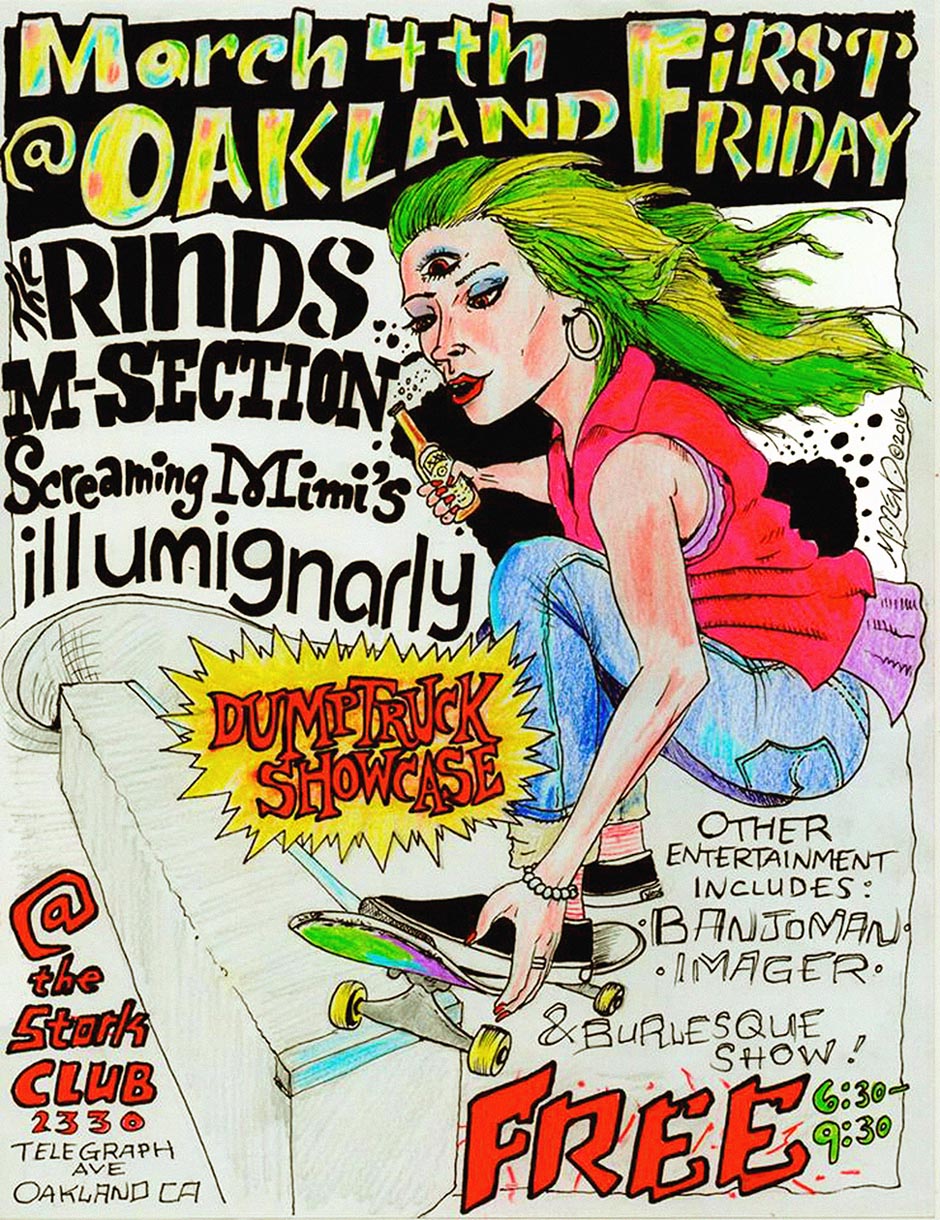 March 4th
@ OAKLAND FiRST
FRIDAY
The RINDS
M-SECTION
Screaming Mimi's
illumignarly
DUMPTRUCK
SHOWCASE
OTHER
ENTERTAINMENT
INCLUDES:
·BANJOMAN·
·IMAGER·
& BURLESQUE
SHOW!
FREE
6:30-
9:30
@
the
Stork
CLUB
2330
TELEGRAPH
AVE
OAKLAND CA
©2016